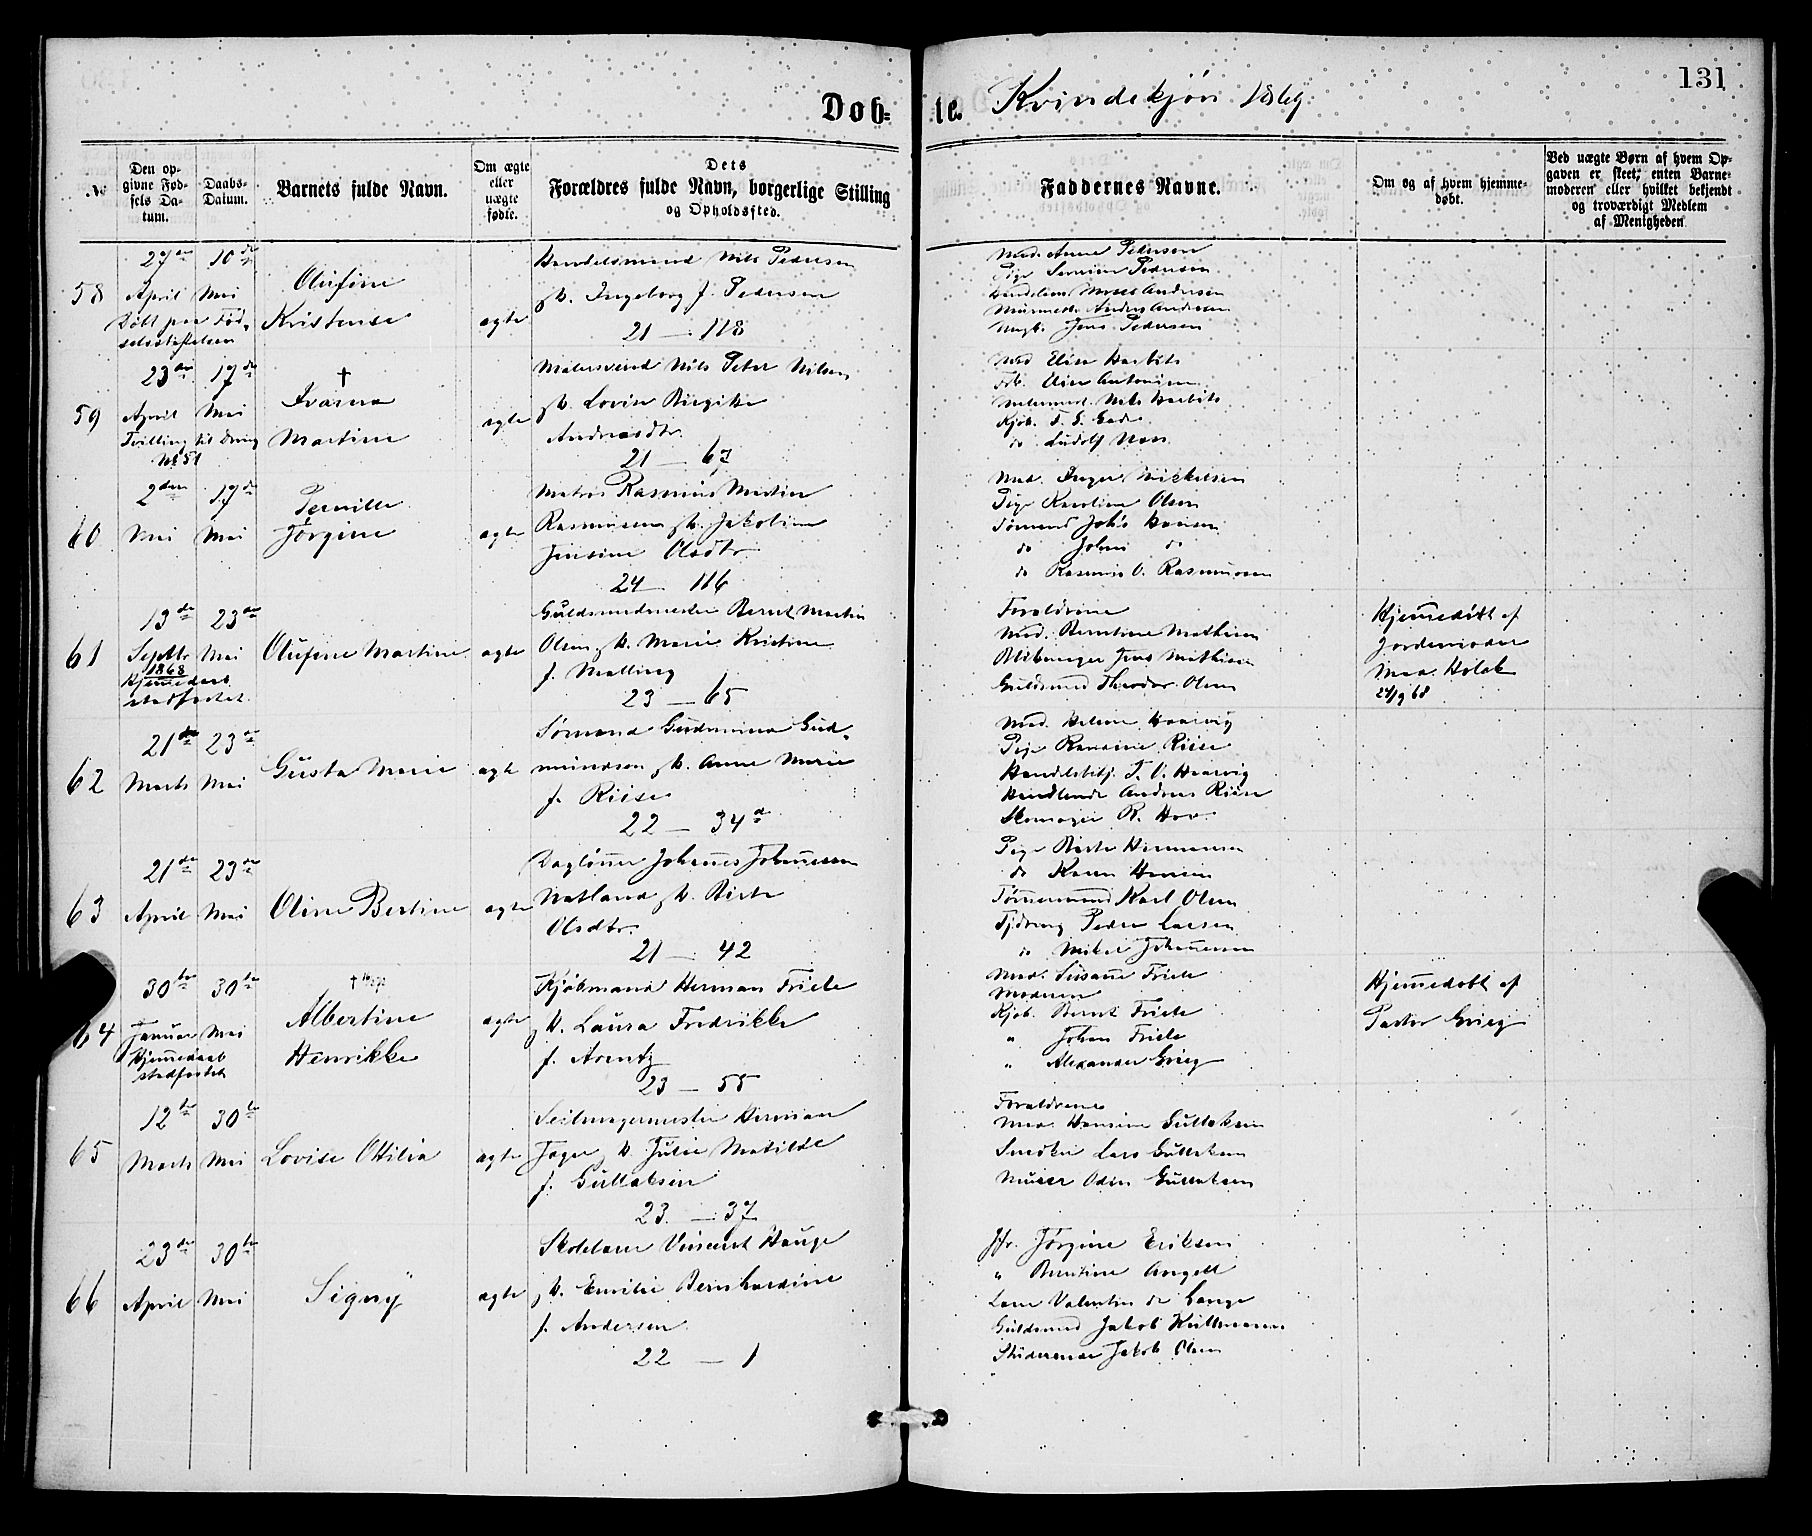 131
Dob-te. Kvindekjøn 1869.
No
Den opgivne Fødsels Datum.
Daabs-Datum.
Barnets fulde Navn.
Om ægte eller uægte fødte.
Dets Forældres fulde Navn, borgerlige Stilling og Opholdssted.
Faddernes Navne.
Om og af hvem hjemmedøbt.
Ved uægte Børn af hvem Opgaven er skeet; enten Barnemoderen eller hvilket bekjendt og troværdigt Medlem af Menigheden
58
27de April
Døbt paa Fødselsstiftelsen
10de Mai
Olufine
Kristense
ægte
Handelsmand Nils Pedersen
Ingeborg f. Pedersen
21 — 118
Mad. Anne Pedersen
Pige Pedersen
Andersen
Anders Andersen
Ungk. Jens Pedersen
59
23de April
Tvilling til Dreng
No 51
17de Mai
†
Ivarna
Martine
ægte
Malersvend Nils Peter Nilsen
Lovise Birgitte
Andreasdtr.
21 — 67
Mad Elise Harbits
Elise Antonisen
Nils Harbits
Kjøb. Gade
do Ludolf
60
2den Mai
17de Mai
Pernille
Jørgine
ægte
Matros Rasmus Martin
Rasmussen Jakobine
Jensine Olsdtr.
24 — 116
Mad. Inger Mickelsen
Pige Karoline Olsen
Sømand Johs Hansen
do Johan do
do Rasmus O. Rasmussen
61
13de Septbr
1868
Hjemmedaab
stadfæstet.
23de Mai
Olufine Martine
ægte
Guldsmedmester Bernt Martin
Olsen Marie Kristine
f. Malling
23 — 65
Forældrene
Mad. Berntine Mathisen
Jens Mathisen
Guldsmed Theodor Olsen
Hjemmedøbt af
Jordemoder
Mad. Holck
24/9 68
62
21de Marts
23de Mai
Gusta Marie
ægte
Sømand Gudmund Gud-
mundsen Anne Marie
f. Riise
22 — 34d
Mad. Helene Haarvig
Pige Riise
Handelsbtj. T. O. Haarvig
Handlende Andreas Riise
Skomager R. Hov
63
21de April
23de Mai
Oline Bertine
ægte
Dagløner Johannes Johannessen
Natland Birte
Olsdtr.
21 — 42
Pige Birte Hermansen
do Karen Hansen
Tømmermand Karl Olsen
Tjdreng Peder Larsen
do Mikal Johannesen
64
30te Januar
Hjemmedaab
stadfæstet
30te Mai
†
Albertine
Henrikke
ægte
Kjøbmand Herman Friele
Laura Fredrikke
f. Arentz
23 — 55
Mad. Susanne Friele
Moderen
Kjøb. Bernt Friele
" Johan Friele
" Alexander Grieg
Hjemmedøbt af
Pastor Grieg
65
12te Marts
30te Mai
Lovise Ottilia
ægte
Seilmagermester Herman
Jæger Julie Matilde
f. Gullaksen
23 — 37
Forældrene
Mad. Hansine Gullaksen
Snedker Lars Gullaksen
Murer Odin Gullaksen
66
23de April
30te Mai
Signy
ægte
Skolelærer Vincent Hauge
Emilie Bernhardine
f. Andersen
22 — 1
Jfr. Jørgine Eriksen
" Berntine Angell
Lærer Valentin de Lange
Guldsmed Jakob Kulmann
Studerende Jakob Olsen